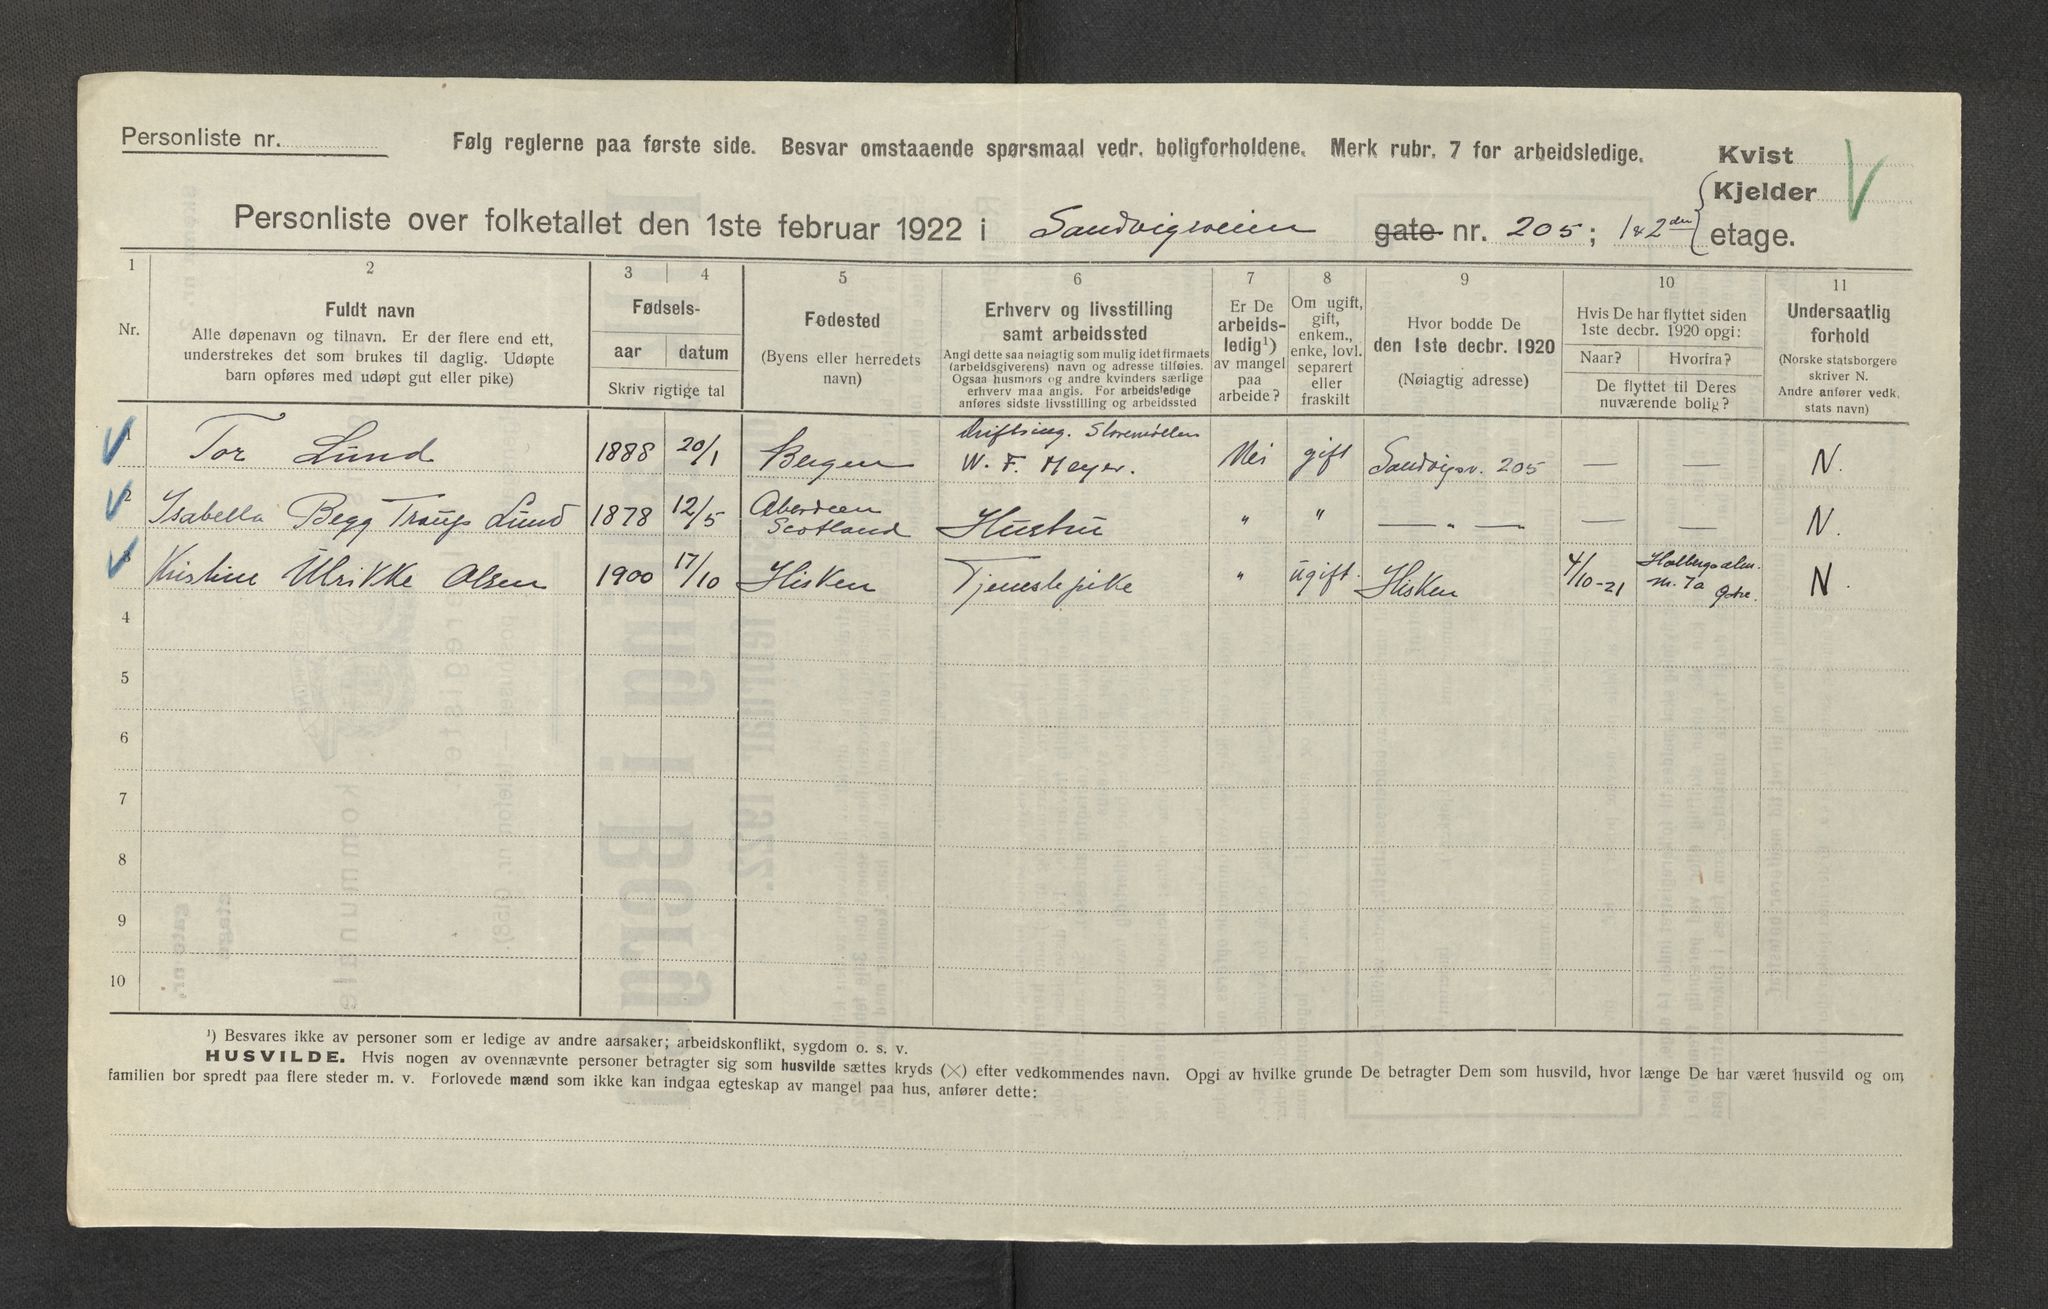 Personliste nr.
Følg reglerne paa første side. Besvar omstaaende spørsmaal vedr. boligforholdene. Merk rubr. 7 for arbeidsledige.
Kvist
Kjelder
Personliste over folketallet den 1ste februar 1922 i Sandvigsveien gate nr. 205; 1 & 2den etage.
1 2 3 4 5 6 7 8 9 10 11
Nr.
Fuldt navn
Alle døpenavn og tilnavn. Er der flere end ett,
understrekes det som brukes til daglig. Udøpte
barn opføres med udøpt gut eller pike)
Fødsels-
aar datum
Skriv rigtige tal
Fødested
(Byens eller herredets
navn)
Erhverv og livsstilling
samt arbeidssted
Angi dette saa nøiagtig som mulig idet firmaets
(arbeidsgiverens) navn og adresse tilføies.
Ogsaa husmors og andre kvinders særlige
erhverv maa angis. For arbeidsledige
anføres sidste livsstilling og arbeidssted
Er De
arbeids-
ledig¹)
av mangel
paa
arbeide?
Om ugift,
gift,
enkem.,
enke, lovl.
separert
eller
fraskilt
Hvor bodde De
den 1ste decbr. 1920
(Nøiagtig adresse)
Hvis De har flyttet siden
1ste decbr. 1920 opgi:
Naar? Hvorfra?
De flyttet til Deres
nuværende bolig?
Undersaatlig
forhold
(Norske statsborgere
skriver N.
Andre anfører vedk.
stats navn)
1 Tor Lund 1888 20/1 Bergen Driftsing. Storemøllen W. F. Meyer. Nei gift Sandvigsv. 205 — — N.
2 Isabella Begg Troup Lund 1878 12/5 Aberdeen Scotland Hustru " " — " — — — N.
3 Kristine Ulrikke Olsen 1900 17/10 Hisken Tjenestepike " ugift. Hisken 4/10-21 Holbergsalm. nr. 7a N.
4
5
6
7
8
9
10
¹) Besvares ikke av personer som er ledige av andre aarsaker; arbeidskonflikt, sygdom o. s. v.
HUSVILDE. Hvis nogen av ovennævnte personer betragter sig som husvilde sættes kryds (×) efter vedkommendes navn. Opgi av hvilke grunde De betragter Dem som husvild, hvor længe De har været husvild og om
familien bor spredt paa flere steder m. v. Forlovede mænd som ikke kan indgaa egteskap av mangel paa hus, anfører dette: